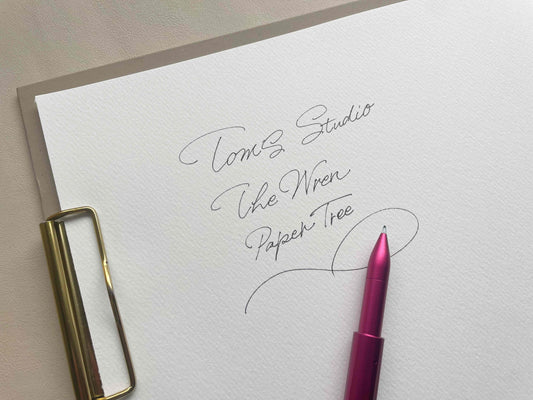 Toms Studio
The Wren
Paper Tree